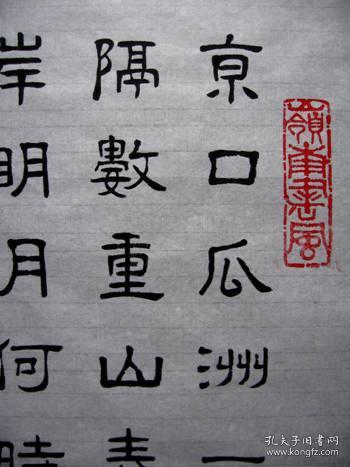 嶺南書風
亰口瓜洲一
隔數重山春
岸明月何時
孔夫子旧书网
kongfz.com